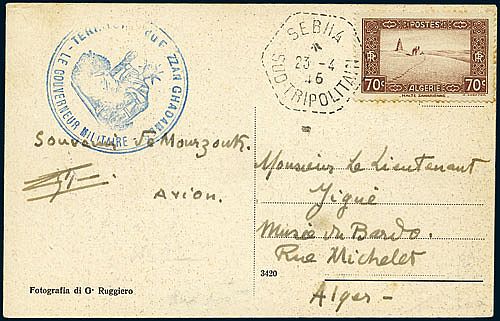 LE GOUVERNEUR MILITAIRE - TERRITOIRE DU FEZZAN GHADAMÈS
SEBHA
23-4
46
SUD TRIPOLITAIN
POSTES
70c ALGÉRIE 70c
Souvenir de Mourzouk
Avion.
Monsieur Le Lieutenant
Musée du Bardo.
Rue Michelet
Alger-
3420
Fotografia di G. Ruggiero